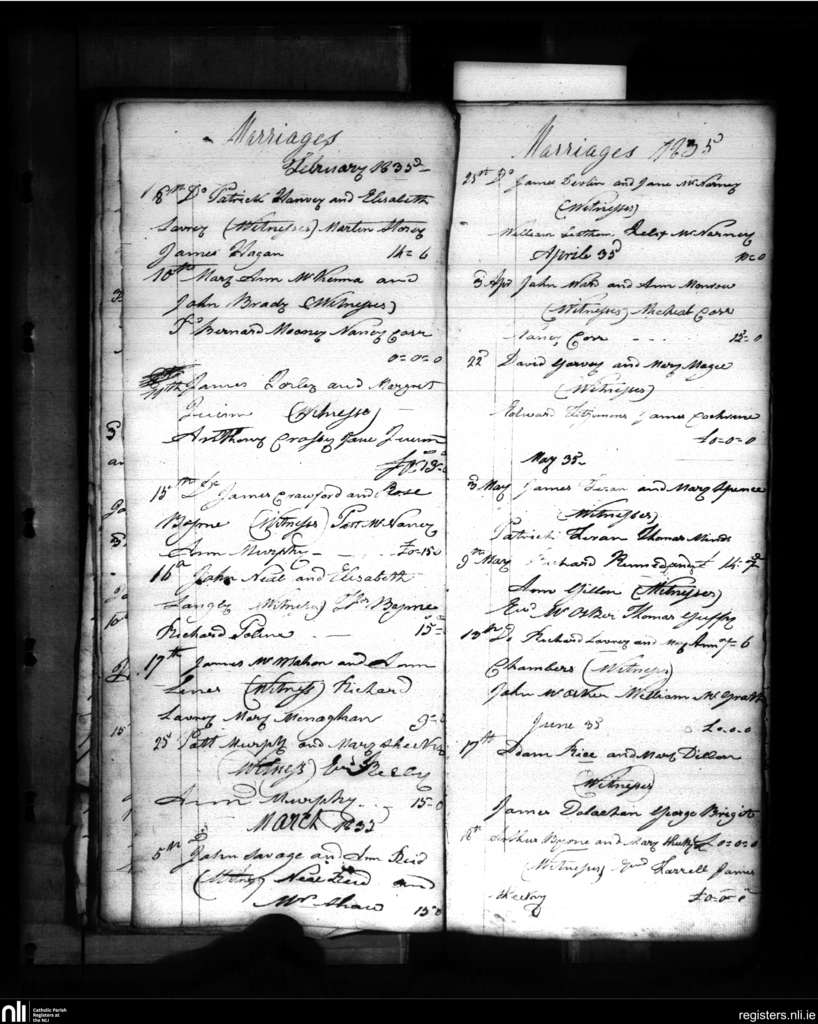 Marriages
February 1835
8th Do Patrick Hanvey and Elisabeth
Lavrey (Witnesses) Martin Storey
James Hagan 14=6
10th Mary Ann McKenna and
John Brady (Witnesses)
Bernard Mooney Nancy Corr
0=0=0
James and Margret
Quinn (Witnesses)
Anthony Crosby Jane Quinn
15th James Crawford and Rose
Byrne (Witnesses) Patt McNancy
Ann Murphy £0=15=0
16 John Neil and Elisabeth
Langly (Witness) Byrne
Richard 15=
17th James McMahon and Ann
(Witness) Richard
Lavrey Mary Monaghan
25 Patt Murphy and Mary
(Witness) Reilly
Ann Murphy 15=0
March 1835
5th John Savage and Ann Reid
(Witness) Neal Reid and
Mr Shaw 15=0
Marriages 1835
25th Do James Devlin and Jane McNarney
(Witnesses)
William Felix McNarney
Aprile 35 10=0
3 Apr John Ward and Ann
(Witnesses) Micheal Corr
Nancy Corr 12=0
22 David Garvey and Mary Magee
(Witness)
Edward Fitzsimons James Cochrane
£0=0=0
May 35
3 May James Firan and Mary Spence
(Witnesses)
Patrick Firan Thomas
9th May Richard Kennedy and 14=
Ann Gillon (Witnesses)
Thomas
13th Do Richard Lavrey and Mary Ann 7=6
Chambers (Witness)
John William McGrath
June 35 £.0.0
17th Adam Rice and Mary Dillon
(Witnesses)
James Dolaghan George Bright
18th Arthur Byrne and Mary £0=0=0
(Witnesses) Farrell James
£0=0=0
nli
Catholic Parish
Registers at
the NLI
registers.nli.ie